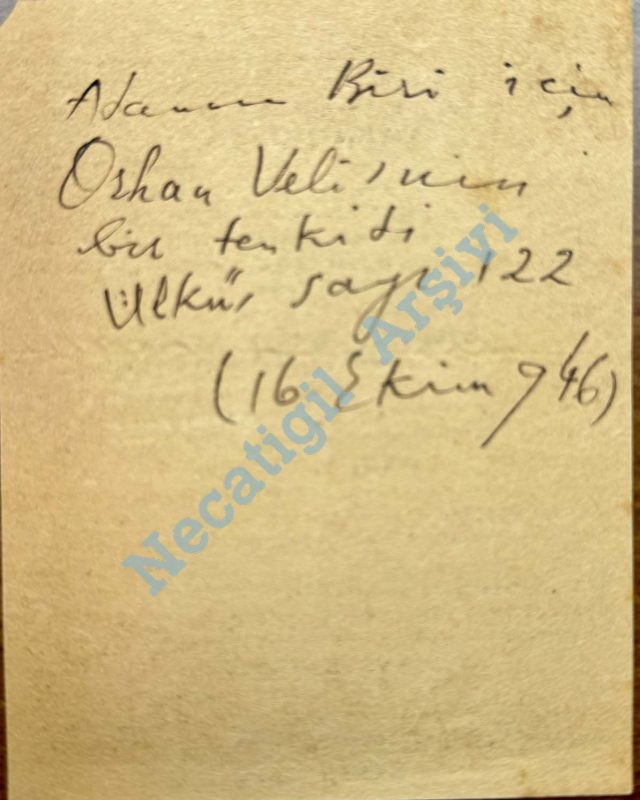 Adamın Biri için
Orhan Veli'nin
bir tenkidi
Ülkü, sayı 122
(16 Ekim 946)
Necatigil Arşivi